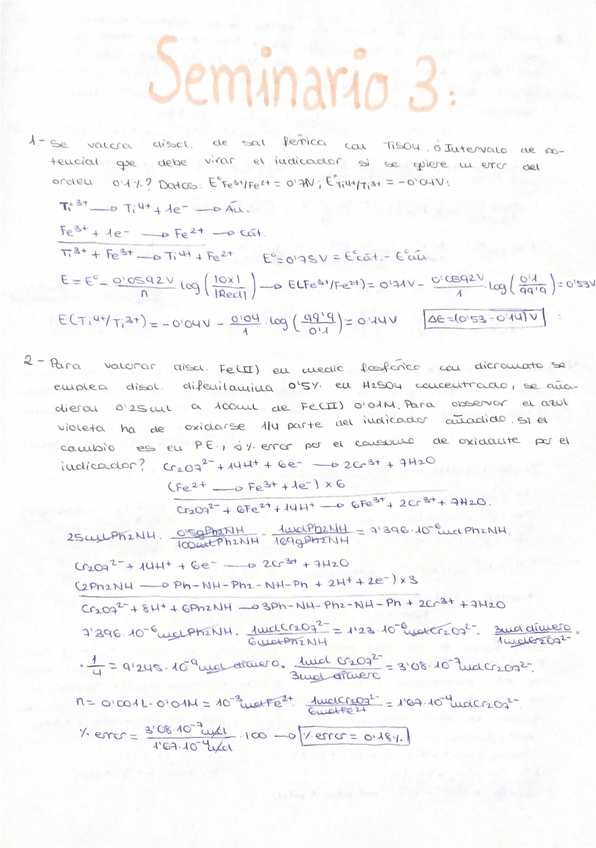 Seminario 3:
1- Se valora disol. de sal férrica con TiSO4. ¿Intervalo de po-
tencial que debe virar el indicador si se quiere un error del
orden 0'1%? Datos: E°Fe3+/Fe2+ = 0'71V; E°Ti4+/Ti3+ = -0'04V:
Ti3+ → Ti4+ + 1e- → Án.
Fe3+ + 1e- → Fe2+ → Cát.
Ti3+ + Fe3+ → Ti4+ + Fe2+ E° = 0'75V = E°cát. - E°án.
E = E° - 0'0592V/n log (|Ox|/|Red|) → E(Fe3+/Fe2+) = 0'71V - 0'0592V/1 · log (0'1/99'9) = 0'53V
E(Ti4+/Ti3+) = -0'04V - 0'04/1 · log (99'9/0'1) = 0'14V ΔE = (0'53 - 0'14)V
2- Para valorar disol. Fe(II) en medio fosfórico con dicromato se
emplea disol. difenilamina 0'5% en H2SO4 concentrado, se aña-
dieron 0'25ml a 100ml de Fe(II) 0'01M. Para observar el azul
violeta ha de oxidarse 1/4 parte del indicador añadido. Si el
cambio es en P.E., ¿% error por el consumo de oxidante por el
indicador? Cr2O7 2- + 14H+ + 6e- → 2Cr3+ + 7H2O
(Fe2+ → Fe3+ + 1e-) × 6
Cr2O7 2- + 6Fe2+ + 14H+ → 6Fe3+ + 2Cr3+ + 7H2O.
25mL Ph2NH · 0'5gPh2NH/100mL Ph2NH · 1molPh2NH/169gPh2NH = 7'396·10-6 mol Ph2NH.
Cr2O7 2- + 14H+ + 6e- → 2Cr3+ + 7H2O
(2Ph2NH → Ph-NH-Ph2-NH-Ph + 2H+ + 2e-) × 3
Cr2O7 2- + 8H+ + 6Ph2NH → 3Ph-NH-Ph2-NH-Ph + 2Cr3+ + 7H2O
7'396·10-6 mol Ph2NH · 1molCr2O7 2-/6molPh2NH = 1'23·10-6 mol Cr2O7 2- · 3mol dímero/1molCr2O7 2- ·
· 1/4 = 9'245·10-9 mol dímero · 1mol Cr2O7 2-/3mol dímero = 3'08·10-7 mol Cr2O7 2-.
n = 0'001L · 0'01M = 10-3 mol Fe2+ · 1molCr2O7 2-/6molFe2+ = 1'67·10-4 mol Cr2O7 2-
% error = 3'08·10-7 mol/1'67·10-4 mol · 100 → % error = 0'18%.